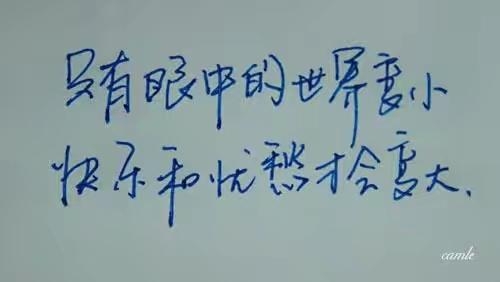 只有眼中的世界变小
快乐和忧愁才会变大.
camle